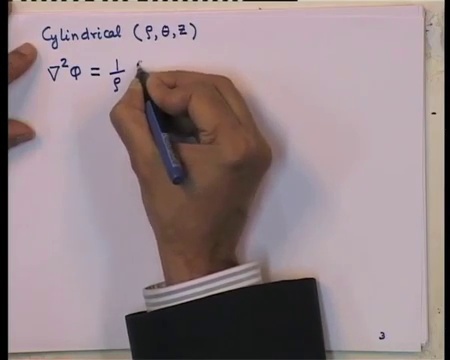 Cylindrical (ρ, θ, z)
∇²φ = 1/ρ
3